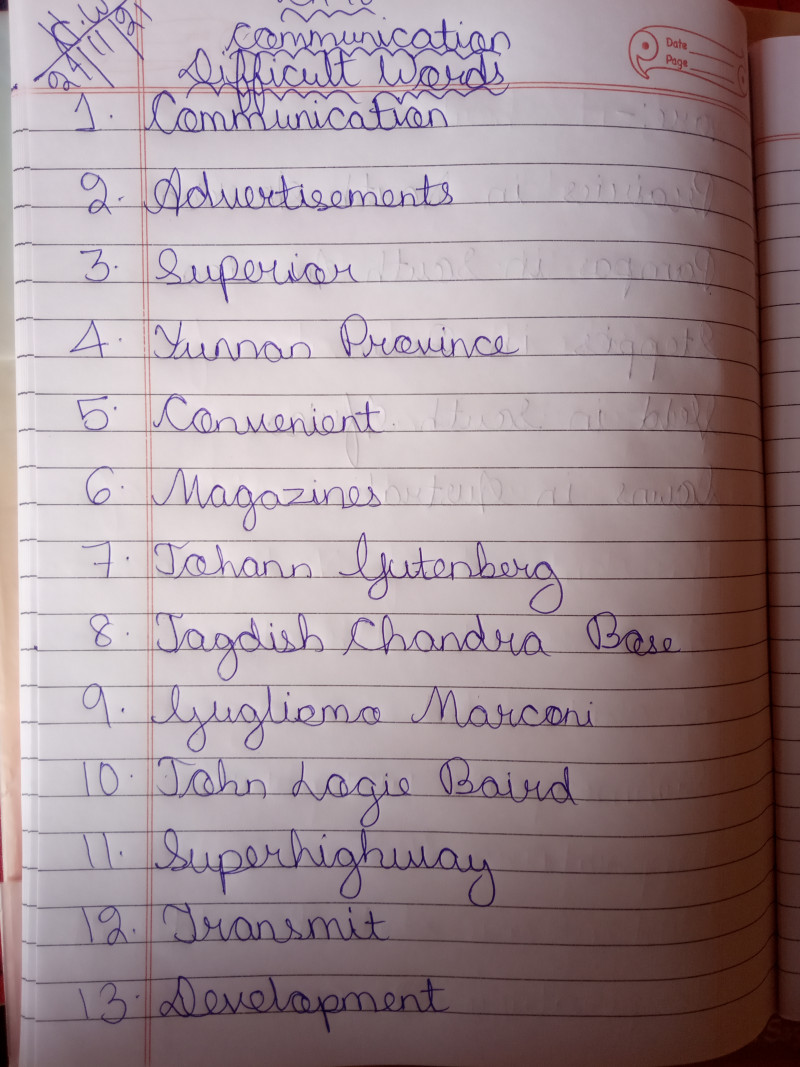 H.W
24/11/21
Communication
Difficult Words
Date
Page
1. Communication
2. Advertisements
3. Superior
4. Yunnan Province
5. Convenient
6. Magazines
7. Johann Gutenberg
8. Jagdish Chandra Bose
9. Gugliemo Marconi
10. John Logie Baird
11. Superhighway
12. Transmit
13. Development